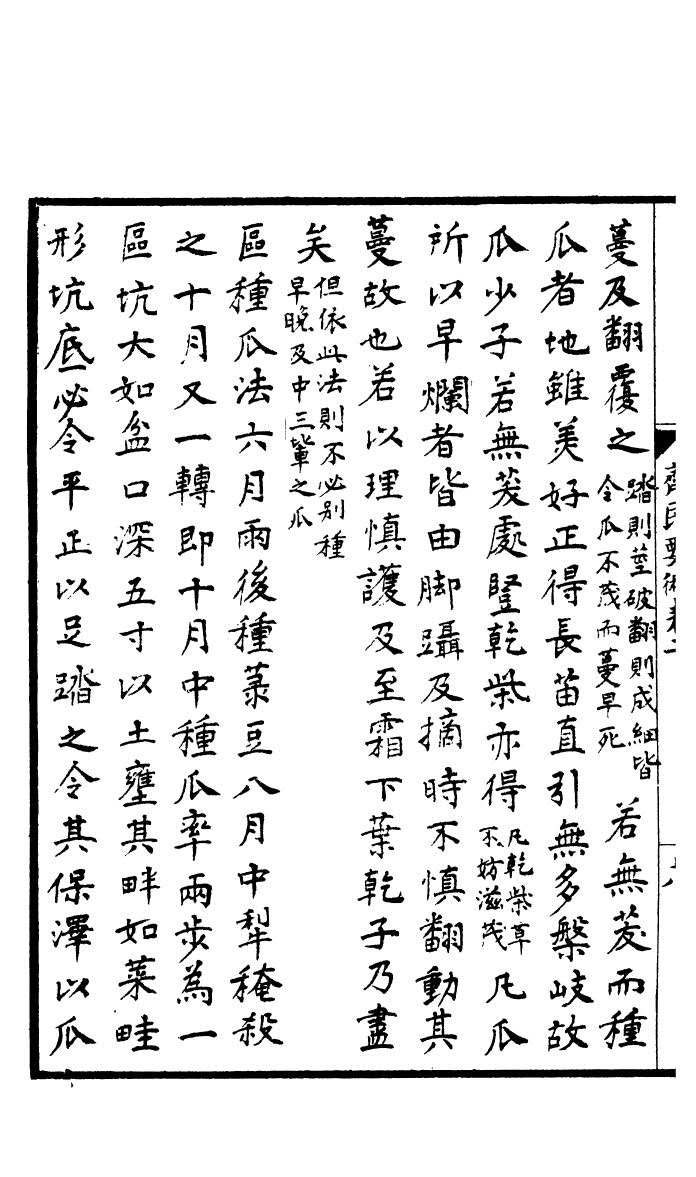 齊民要術卷二
十八
蔓及翻覆之踏則莖破翻則成細皆令瓜不茂而蔓早死若無茇而種
瓜者地雖美好正得長苗直引無多槃岐故
瓜少子若無茇處豎乾柴亦得凡乾柴草不妨滋茂凡瓜
所以早爛者皆由脚躡及摘時不慎翻動其
蔓故也若以理慎護及至霜下葉乾子乃盡
矣但依此法則不必别種早晚及中三輩之瓜
區種瓜法六月雨後種菉豆八月中犁䅖殺
之十月又一轉即十月中種瓜率兩步為一
區坑大如盆口深五寸以土壅其畔如菜畦
形坑底必令平正以足踏之令其保澤以瓜